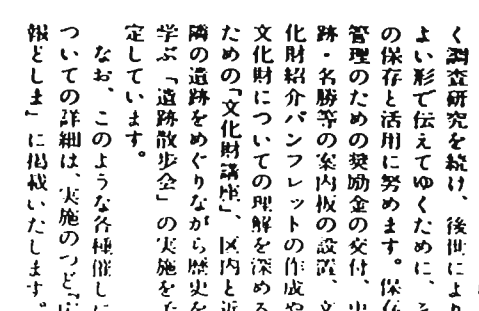 く調査研究を続け、後世により
よい形で伝えてゆくために、
の保存と活用に努めます。保存
管理のための奨励金の交付、史
跡・名勝等の案内板の設置、文
化財紹介パンフレットの作成や
文化財についての理解を深める
ための「文化財講座」、区内と近
隣の遺跡をめぐりながら歴史を
学ぶ「遺跡散歩会」の実施を予
定しています。
なお、このような各種催しに
ついての詳細は、実施のつど「
報としま」に掲載いたします。